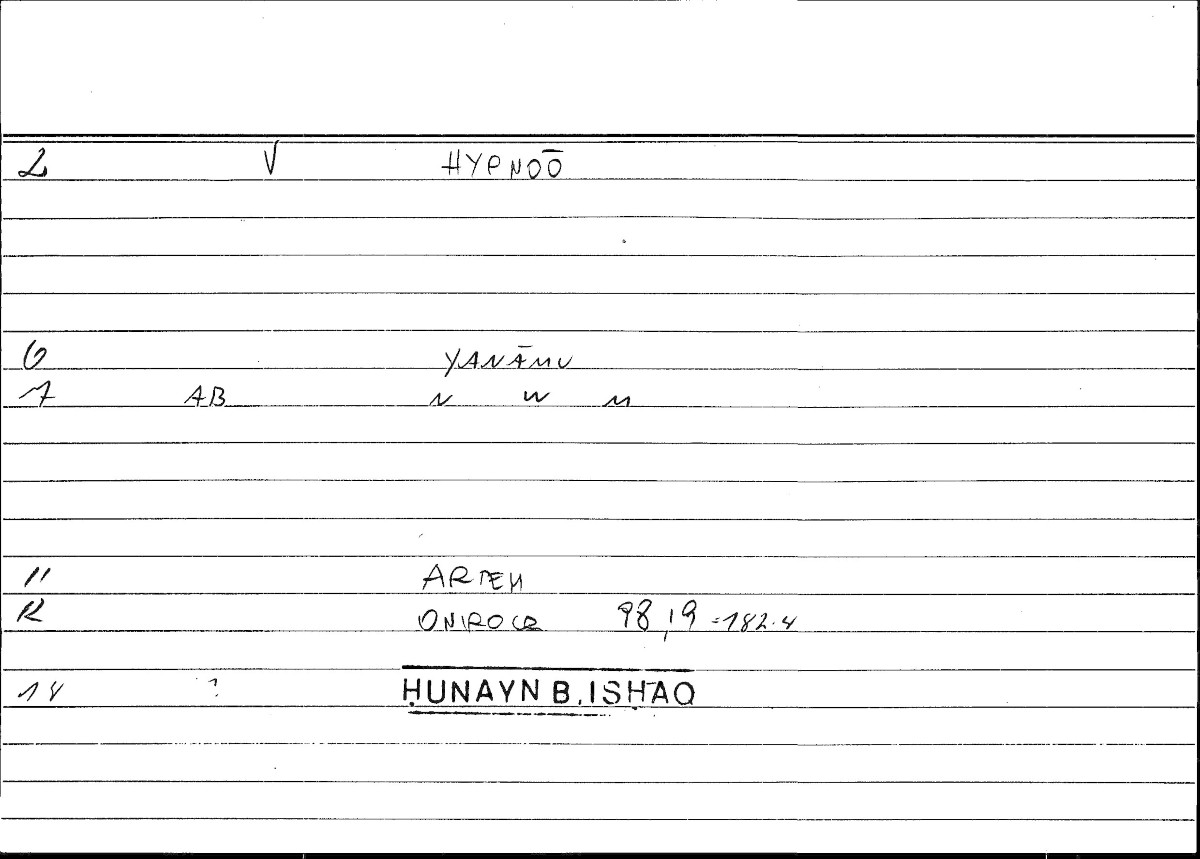 2 V HYPNOŌ
6 YANĀMU
7 AB N W M
11 ARTEM
12 ONIROCR 98,19 = 182.4
14 ? ḤUNAYN B. ISḤĀQ